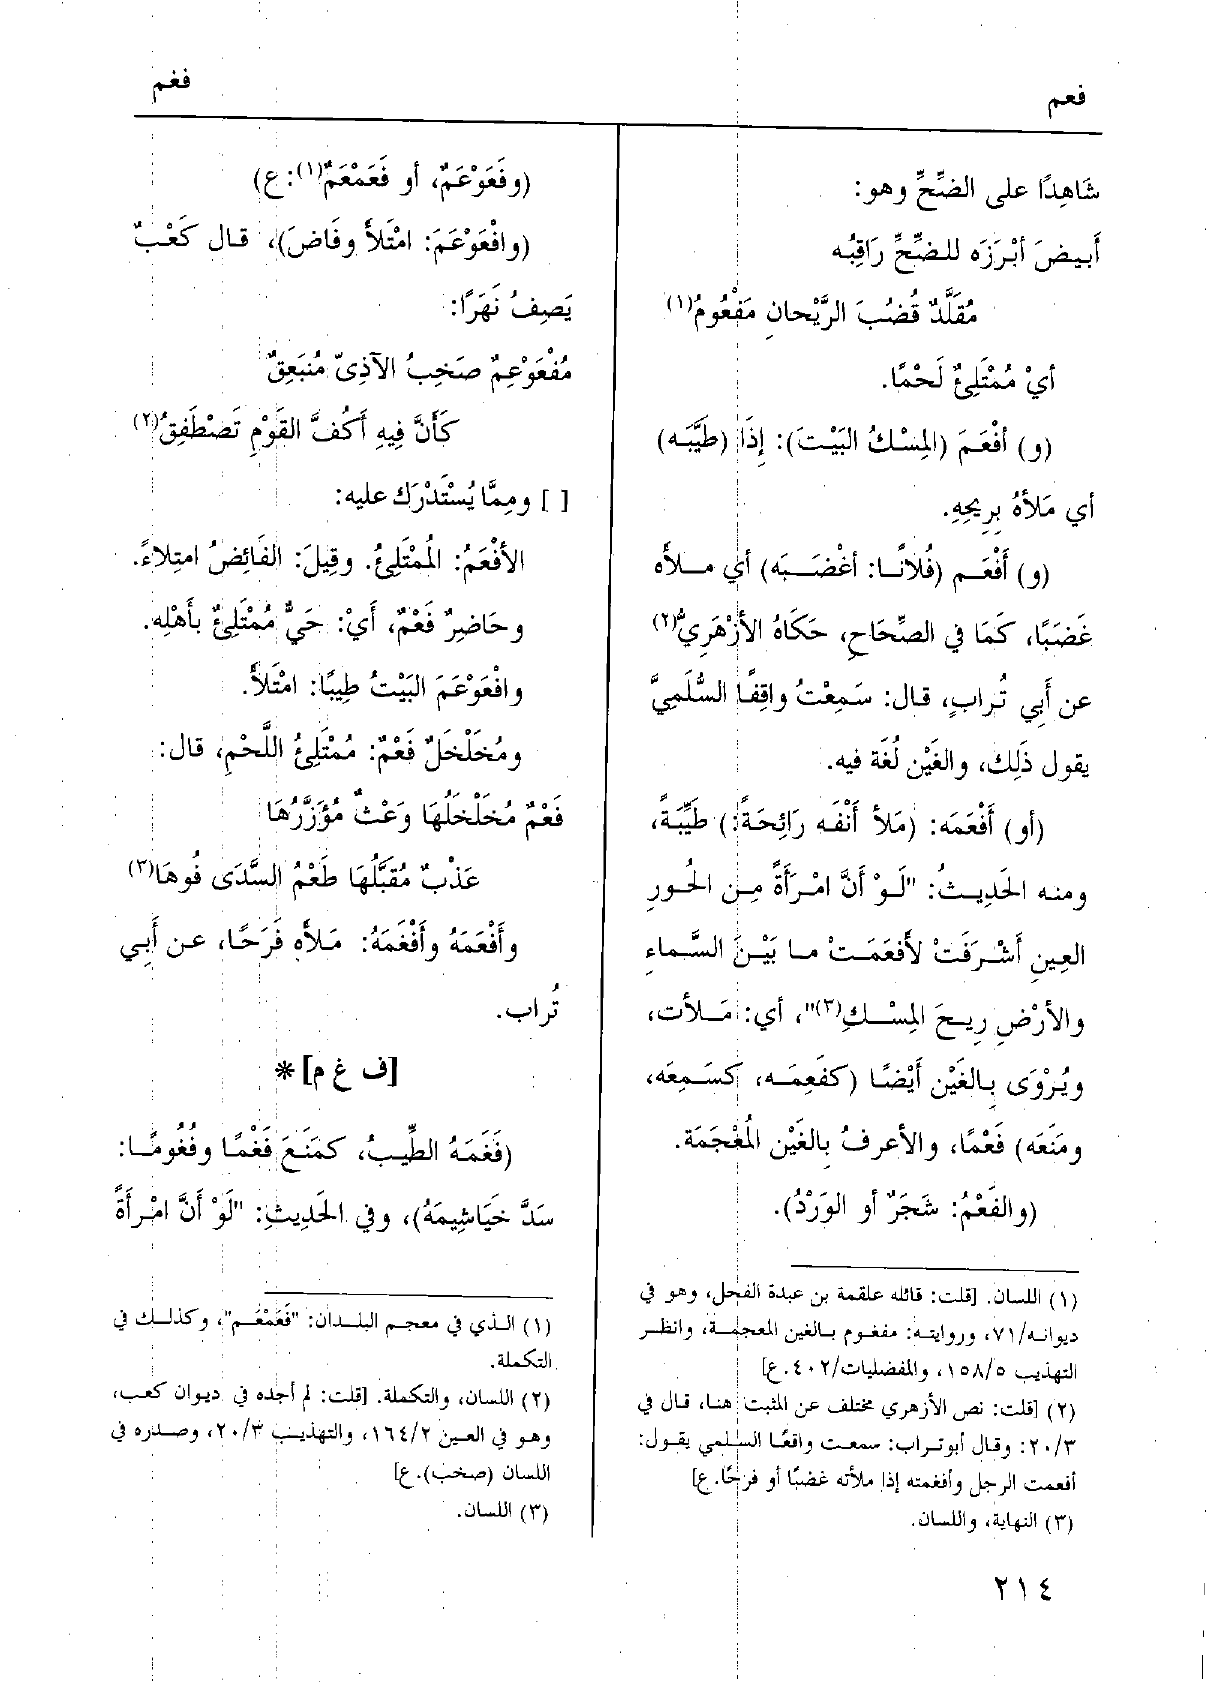 فعم
فغم
شَاهِدًا على الضِّحِّ وهو:
أَبيضَ أبْرَزَه للضِّحِّ رَاقِبُه
مُقَلَّدٌ قُضُبَ الرَّيْحانِ مَفْعُومُ(١)
أيْ مُمْتَلِئٌ لَحْمًا.
(و) أفْعَمَ (المِسْكُ البَيْتَ): إِذَا (طيَّبَه)
أي مَلأهُ بِرِيحِهِ.
(و) أَفْعَم (فُلانًا: أغْضَبَه) أي ملأه
غَضَبًا، كَمَا في الصِّحَاحِ، حَكَاهُ الأزْهَرِيُّ(٢)
عن أَبي تُرابٍ، قال: سَمِعْتُ واقِفًا السُّلَمِيَّ
يقول ذَلِك، والغَيْن لُغَة فيه.
(أو) أَفْعَمَه: (مَلأ أَنْفَه رَائِحَةً:) طَيِّبَةً،
ومنه الحَدِيثُ: "لَوْ أَنَّ امْرَأَةً مِن الحُورِ
العِينِ أَشْرَفَتْ لأَفعَمَتْ ما بَيْنَ السَّماءِ
والأرْضِ رِيحَ المِسْكِ(٣)"، أي: مَلأت،
ويُرْوَى بالغَيْن أَيْضًا (كفَعِمَه، كسَمِعَه،
ومَنَعَه) فَعْمًا، والأعرفُ بالغَيْن المُعْجَمَة.
(والفَعْمُ: شَجَرٌ أو الوَرْدُ).
(١) اللسان. [قلت: قائله علقمة بن عبدة الفحل، وهو في
ديوانه/٧١، وروايته: مفغوم بالغين المعجمة، وانظر
التهذيب ١٥٨/٥، والمفضليات/٤٠٢. ع]
(٢) [قلت: نص الأزهري مختلف عن المثبت هنا، قال في
٢٠/٣: وقال أبوتراب: سمعت واقعًا السلمي يقول:
أفعمت الرجل وأفغمته إذا ملأته غضبًا أو فرحًا. ع]
(٣) النهاية، واللسان.
(وفَعَوْعَمٌ، أو فَعَمْعَمٌ(١): ع)
(وافْعَوْعَمَ: امْتَلأَ وفَاضَ)، قال كَعْبٌ
يَصِفُ نَهَرًا:
مُفْعَوْعِمٌ صَخِبُ الآذِىّ مُنْبَعِقٌ
كَأَنَّ فِيهِ أَكُفَّ القَوْمِ تَصْطَفِقُ(٢)
[ ] ومِمَّا يُسْتَدْرَك عليه:
الأفْعَمُ: المُمْتَلِئُ. وقِيلَ: الفَائِضُ امتِلاءً.
وحَاضِرٌ فَعْمٌ، أَيْ: حَيٌّ مُمْتَلِئٌ بأَهْلِه.
وافْعَوْعَمَ البَيْتُ طِيبًا: امْتَلأَ.
ومُخَلْخَلٌ فَعْمٌ: مُمْتَلِئُ اللَّحْمِ، قال:
فَعْمٌ مُخَلْخَلُهَا وَعْثٌ مُؤَزَّرُهَا
عَذْبٌ مُقَبَّلُهَا طَعْمُ السَّدَى فُوهَا(٣)
وأَفْعَمَهُ وأَفْغَمَهُ: مَلأَه فَرَحًا، عن أَبِي
تُراب.
[ف غ م] *
(فَغَمَهُ الطِّيبُ، كمَنَعَ فَغْمًا وفُغُومًا:
سَدَّ خَيَاشِيمَهُ)، وفي الحَدِيثِ: "لَوْ أَنَّ امْرأَةً
(١) الذي في معجم البلدان: "فَعَمْعَم"، وكذلك في
التكملة.
(٢) اللسان، والتكملة. [قلت: لم أجده في ديوان كعب،
وهو في العين ١٦٤/٢، والتهذيب ٢٠/٣، وصدره في
اللسان (صخب). ع]
(٣) اللسان.
٢١٤